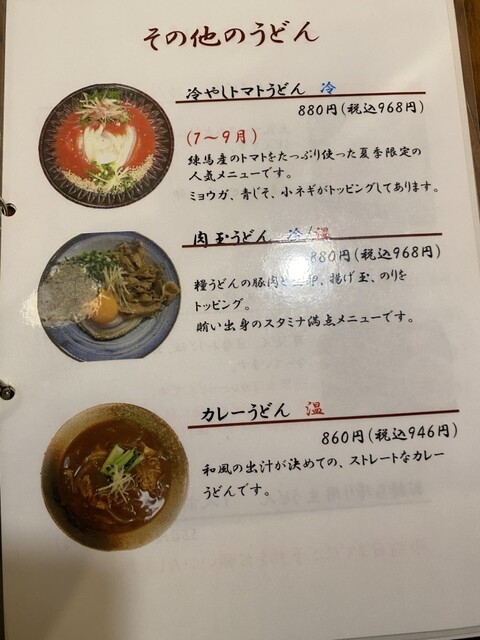 その他のうどん
冷やしトマトうどん 冷
880円(税込968円)
(7～9月)
練馬産のトマトをたっぷり使った夏季限定の
人気メニューです。
ミョウガ、青じそ、小ネギがトッピングしてあります。
肉玉うどん 冷/温
880円(税込968円)
糧うどんの豚肉と 卵、揚げ玉、のりを
トッピング。
賄い出身のスタミナ満点メニューです。
カレーうどん 温
860円(税込946円)
和風の出汁が決めての、ストレートなカレー
うどんです。